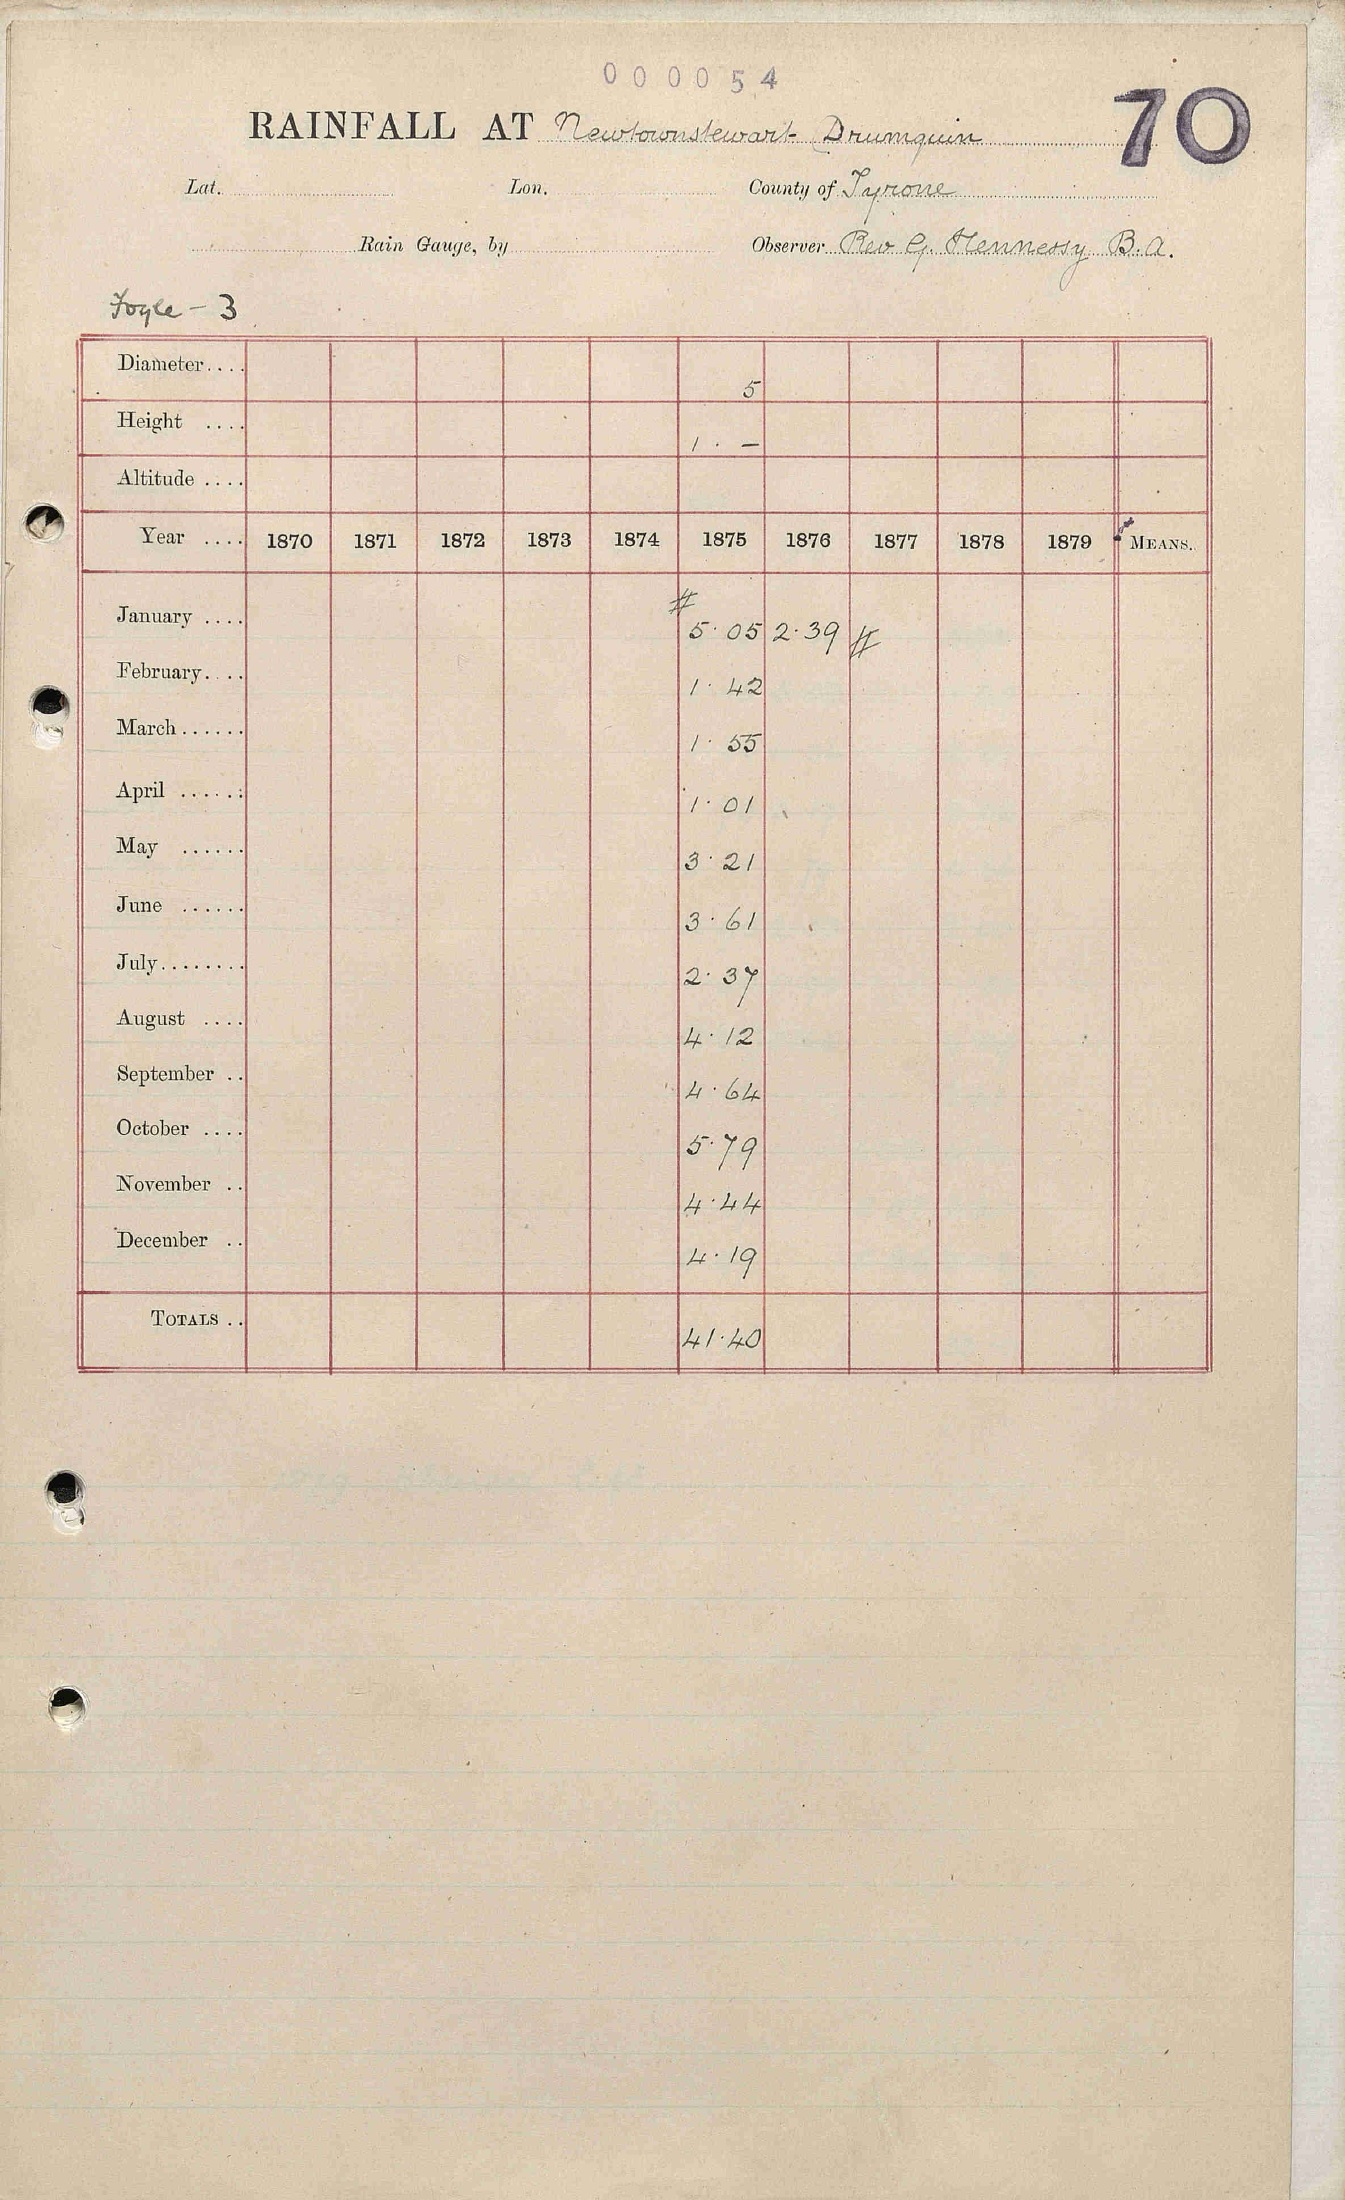 000054
70
RAINFALL AT Newtownstewart Drumquin
Lat. Lon. County of Tyrone
Rain Gauge, by Observer Rev G. Hennessy B.A.
Foyle - 3
Diameter.... 5
Height .... 1 · -
Altitude ....
Year .... 1870 1871 1872 1873 1874 1875 1876 1877 1878 1879 MEANS.
January .... # 5·05 2·39 #
February.... 1·42
March...... 1·55
April ...... 1·01
May ...... 3·21
June ...... 3·61
July........ 2·37
August .... 4·12
September .. 4·64
October .... 5·79
November .. 4·44
December .. 4·19
TOTALS .. 41·40